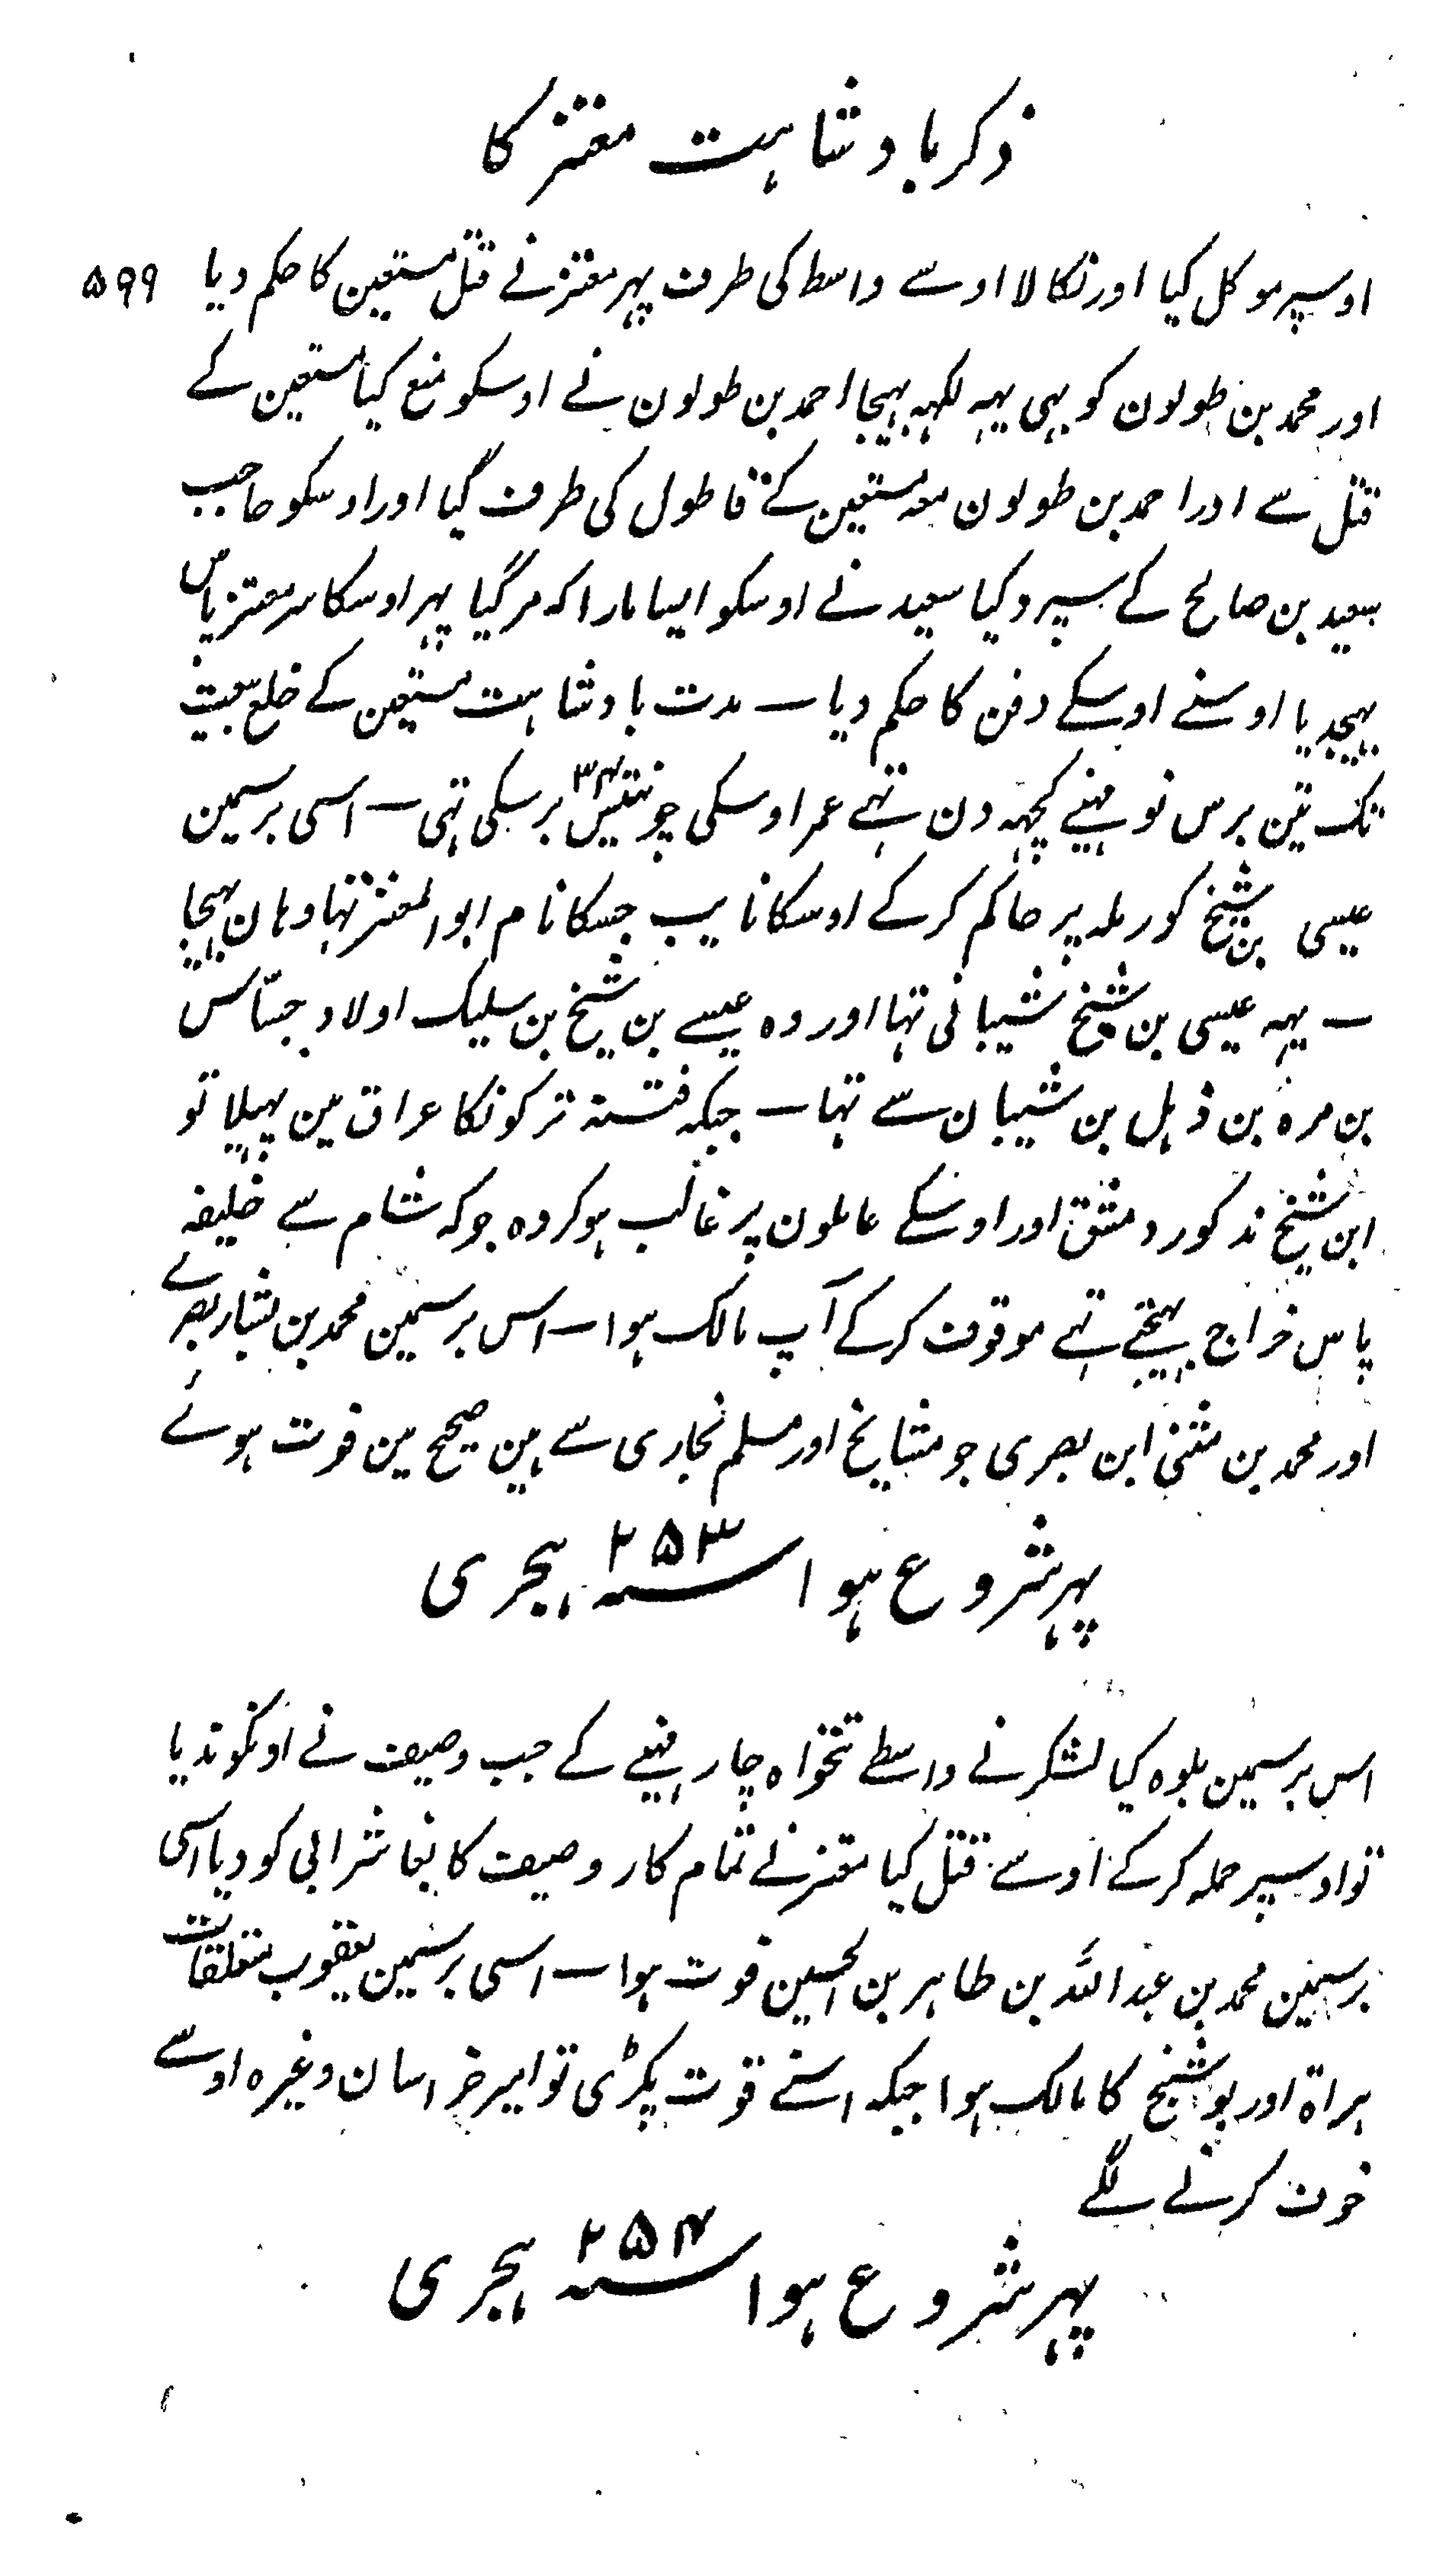 ذکر بادشاہت معتز کا
۵۹۹
اوسپر موکل کیا اور نکالا اوسے واسط کی طرف پہر معتز نے قتل مستعین کا حکم دیا
اور محمد بن طولون کو یہی یہہ لکہہ بہیجا احمد بن طولون نے اوسکو منع کیا مستعین کے
قتل سے اور احمد بن طولون معہ مستعین کے قاطول کی طرف گیا اور اوسکو حاجب
سعید بن صالح کے سپرد کیا سعید نے اوسکو ایسا مارا کہ مر گیا پہر اوسکا سر معتز پاس
بہیجدیا اوسنے اوسکے دفن کا حکم دیا — مدت بادشاہت مستعین کے خلع بیعت
تک تین برس نو مہینے کچہہ دن تہے عمر اوسکی چونتیس ۳۴ برسکی تہی — اسی برسمین
عیسی بن شیخ کو رملہ پر حاکم کرکے اوسکا نایب جسکا نام ابو المعتز تہا وہان بہیجا
— یہہ عیسی بن شیخ شیبانی تہا اور وہ عیسے بن شیخ بن سلیک اولاد جساس
بن مرہ بن ذہل بن شیبان سے تہا — جبکہ فتنہ ترکونکا عراق مین پہیلا تو
ابن شیخ مذکور دمشق اور اوسکے عاملون پر غالب ہوکر وہ جو کہ شام سے خلیفہ
پاس خراج بہیجتے تہے موقوف کرکے آپ مالک ہوا — اس برسمین محمد بن بشار بصرے
اور محمد بن مثنی ابن بصری جو مشایخ اور مسلم بخاری سے ہین صحیح مین فوت ہوئے
پہر شروع ہوا سنہ ۲۵۳ ہجری
اس برسمین بلوہ کیا لشکر نے واسطے تنخواہ چار مہینے کے جب وصیف نے اونکو ندیا
تو اوسپر حملہ کرکے اوسے قتل کیا معتز نے تمام کار وصیف کا بغا شرابی کو دیا اسی
برسمین محمد بن عبد اللہ بن طاہر بن الحسین فوت ہوا — اسی برسمین یعقوب متعلقات
ہراۃ اور بوشنج کا مالک ہوا جبکہ اسنے قوت پکڑی تو امیر خراسان وغیرہ اوسے
خوف کرنے لگے
پہر شروع ہوا سنہ ۲۵۴ ہجری